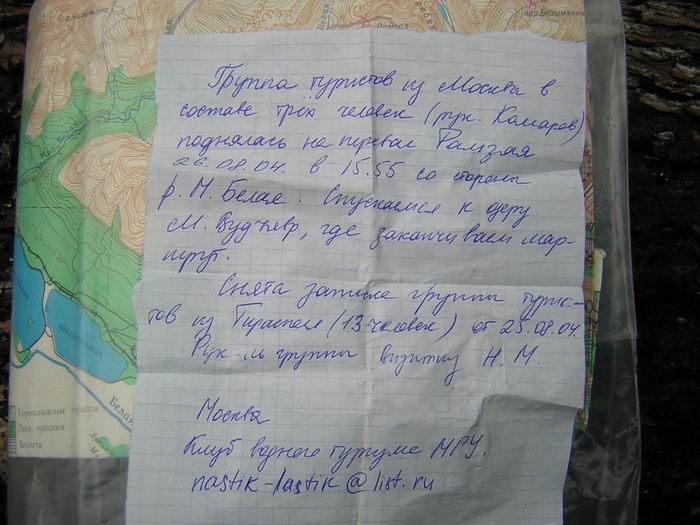 Группа туристов из Москвы в
составе трёх человек (рук. Комаров)
поднялась на перевал Рамзая
26.08.04. в 15.55 со стороны
р. М. Белая. Спускаемся к озеру
М. Вудъявр, где заканчиваем мар-
шрут.
Снята записка группы турис-
тов из Тирасполя (13 человек) от 25.08.04.
Рук-ль группы Визитиу Н. М.
Москва
Клуб водного туризма МГУ.
nastik-lastik@list.ru
Горнолыжные трассы
Лес. просеки
Болота
Белая
пер. Безымянный